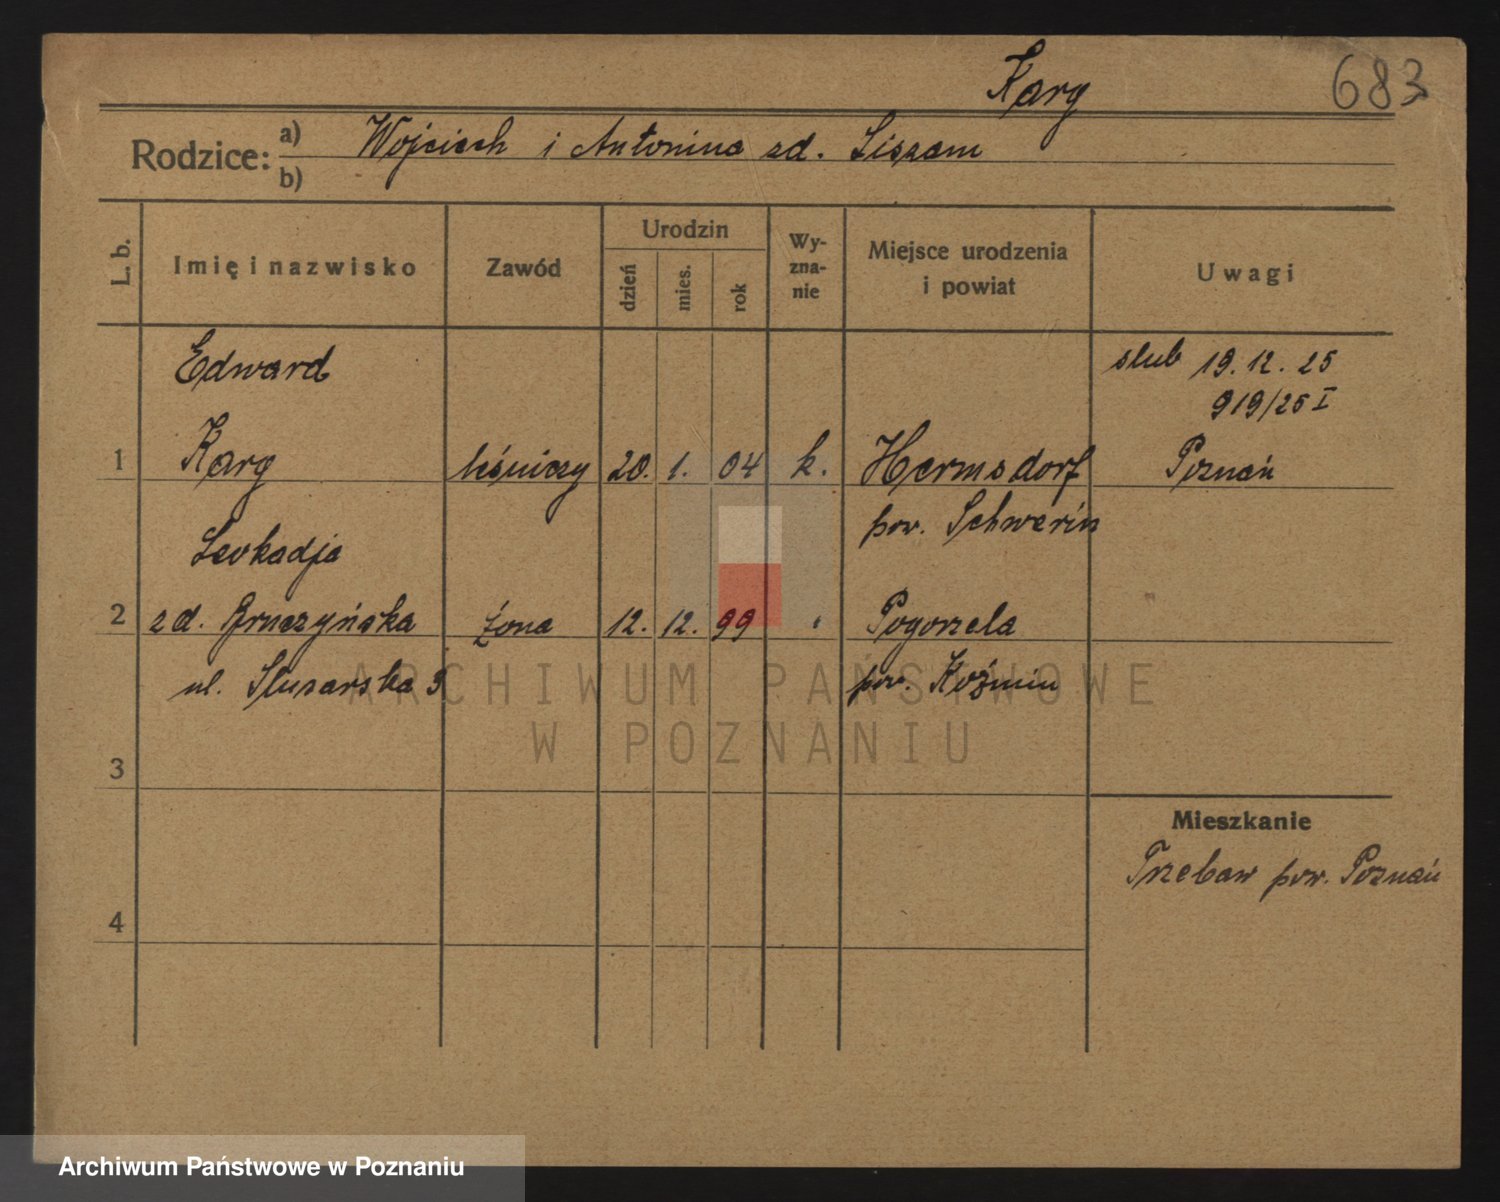 Karg
683
Rodzice:
a) Wojciech i Antonina zd. Liszam
b)
L. b.
Imię i nazwisko
Zawód
Urodzin
dzień
mies.
rok
Wy-
zna-
nie
Miejsce urodzenia
i powiat
Uwagi
Edward
slub 19. 12. 25
919/25 I
1 Karg leśniczy 20. 1. 04 k. Hermsdorf Poznań
pow. Schwerin
Leokadja
2 zd. Gruszyńska żona 12. 12. 99 " Pogorzela
ul. Slusarska 3 pow. Koźmin
3
Mieszkanie
Trzebaw pow. Poznań
4
ARCHIWUM PAŃSTWOWE
W POZNANIU
Archiwum Państwowe w Poznaniu